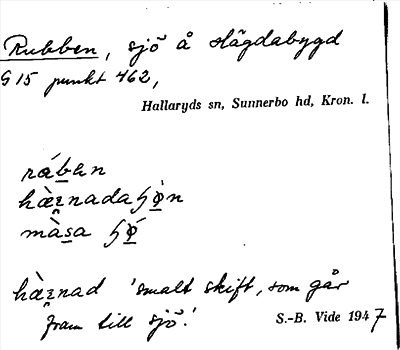 Rubben, sjö å Hägdabygd
G 15 punkt 462,
Hallaryds sn, Sunnerbo hd, Kron. l.
ráben
hæ̀rnadaɧø̀n
màsa ɧǿ
hæ̀rnad 'smalt skift, som går
fram till sjö.'
S.-B. Vide 1947